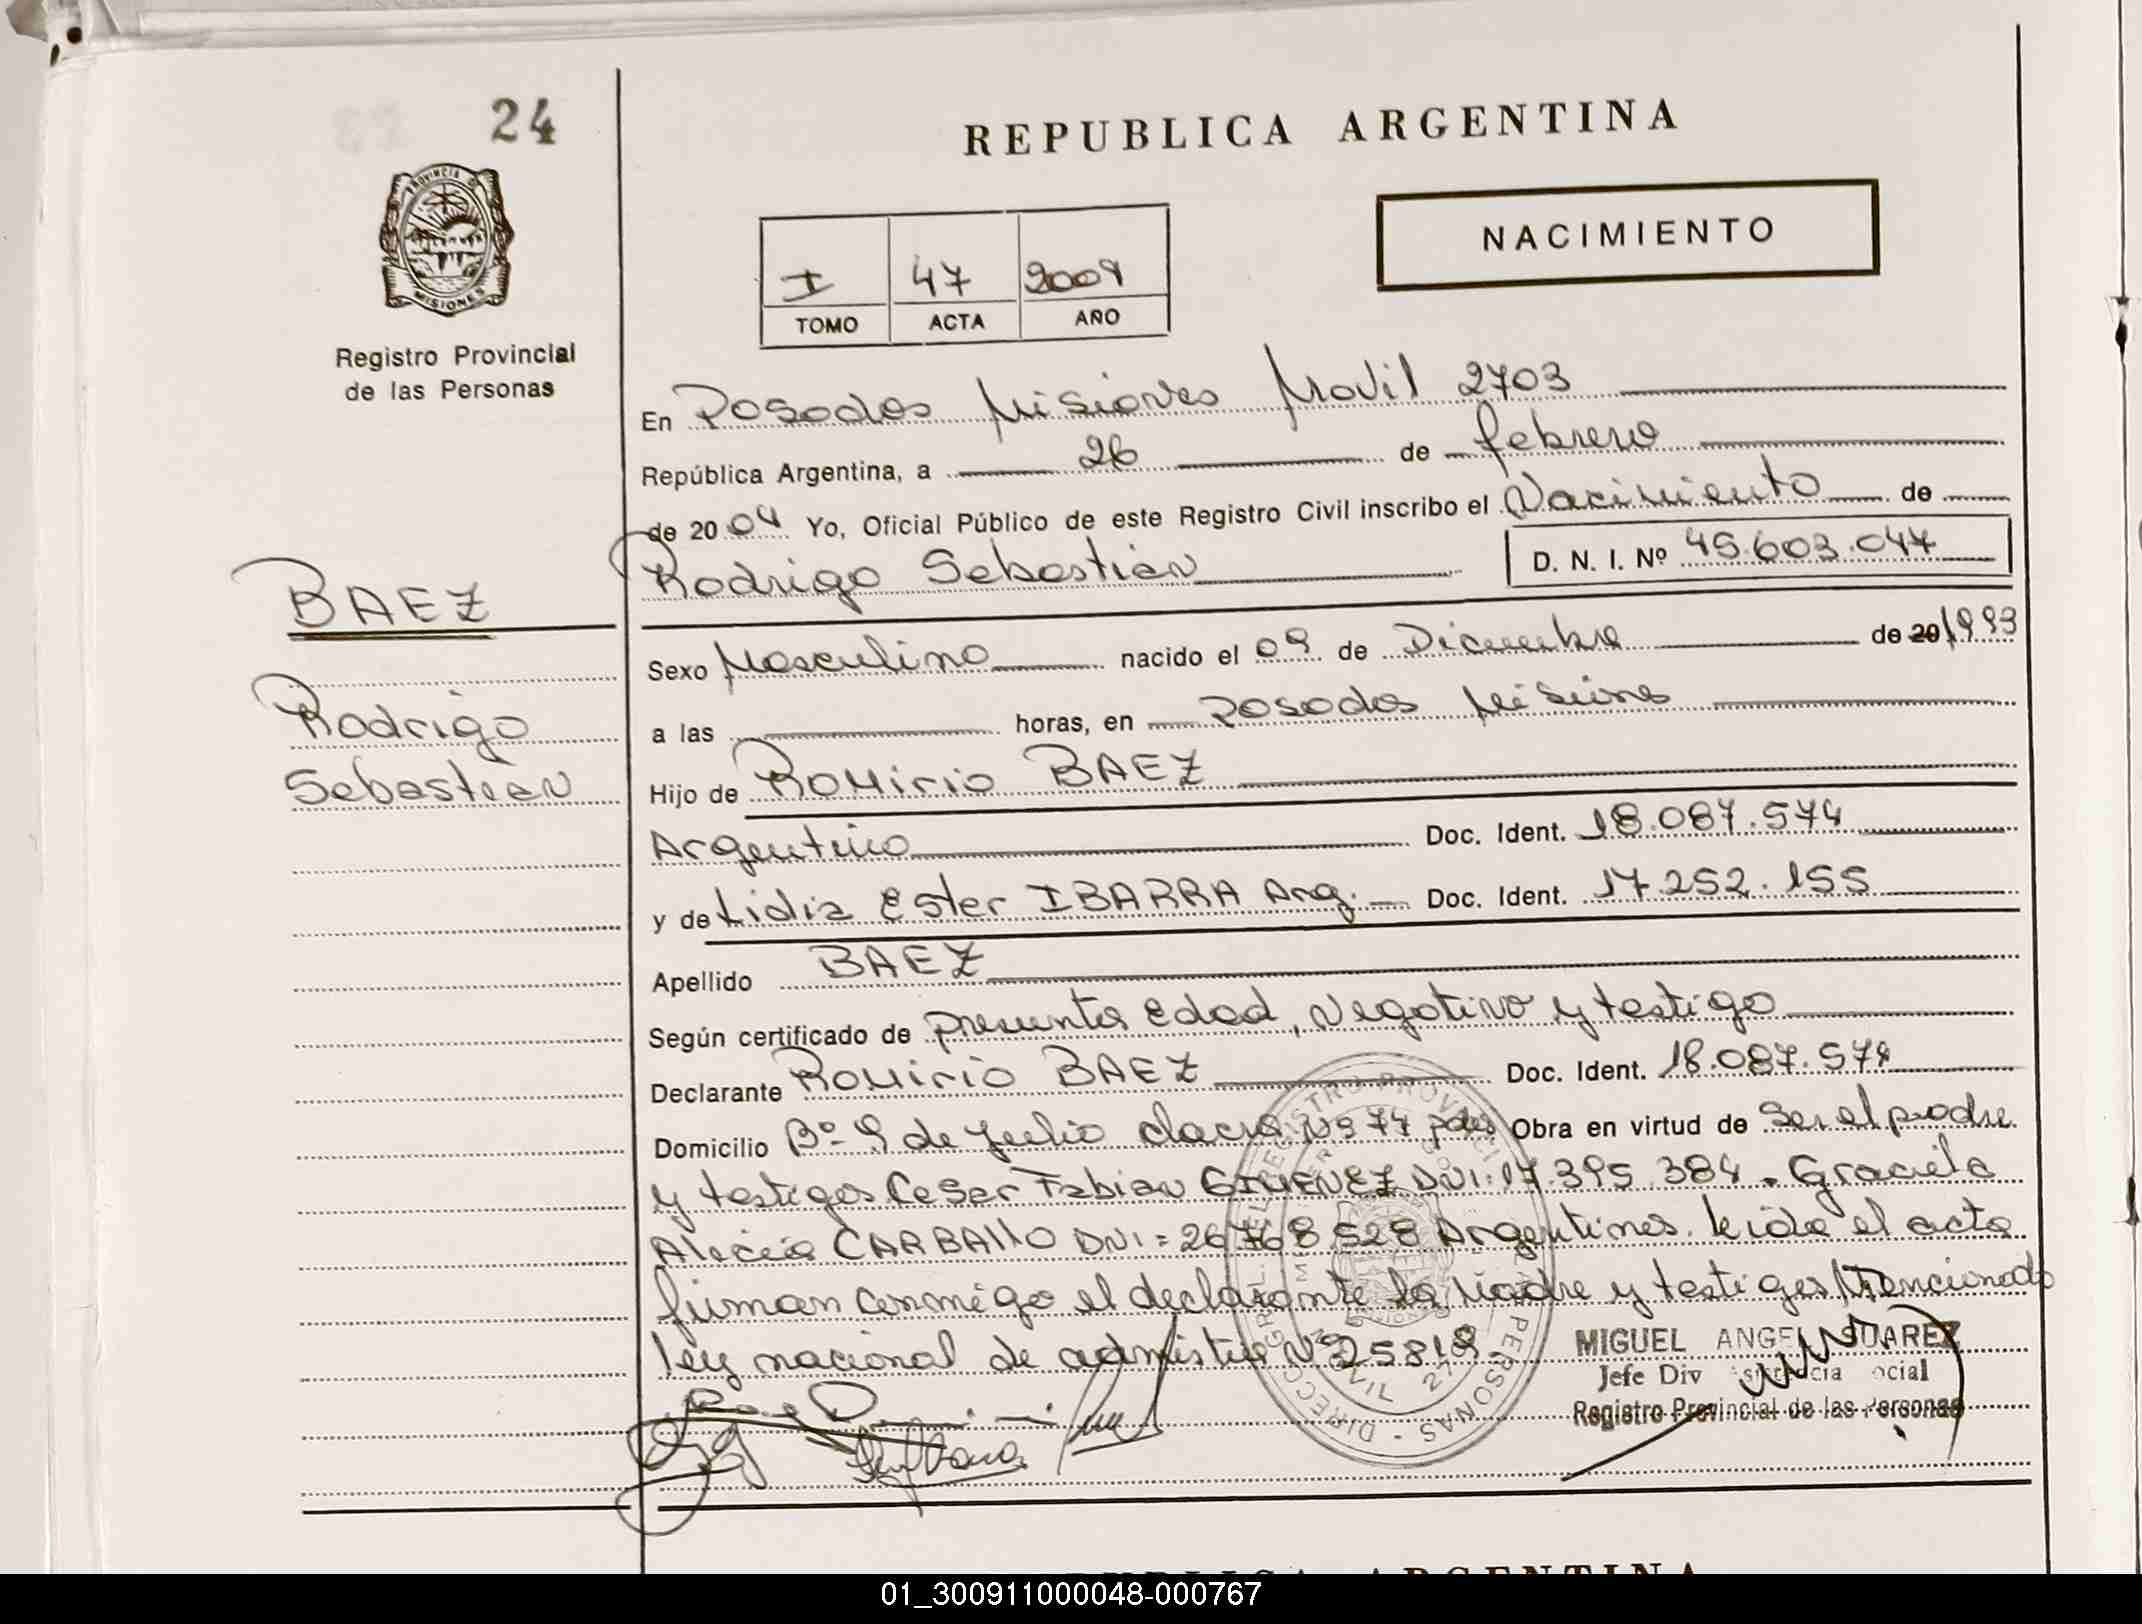 24
REPUBLICA ARGENTINA
NACIMIENTO
PROVINCIA DE
MISIONES
Registro Provincial
de las Personas
I 47 2004
TOMO ACTA AÑO
En Posadas Misiones Movil 2703
República Argentina, a 26 de febrero
de 2004 Yo, Oficial Público de este Registro Civil inscribo el Nacimiento de
Rodrigo Sebastián D. N. I. Nº 45.603.047
BAEZ
Rodrigo
Sebastian
Sexo Masculino nacido el 09 de Diciembre de 20 1993
a las horas, en Posadas Misiones
Hijo de Romirio BAEZ
Argentino Doc. Ident. 18.087.574
y de Lidia Ester IBARRA Arg. Doc. Ident. 17.252.155
Apellido BAEZ
Según certificado de presunta edad, negativo y testigo
Declarante Romirio BAEZ Doc. Ident. 18.087.574
Domicilio Bº 9 de Julio chacra Nº 74 pdas Obra en virtud de ser el padre
y testigos Cesar Fabian GIMENEZ DNI: 17.395.384. Graciela
Alecia CARBAllO DNI = 26.768.528 Argentinos. leida el acta
firman conmigo el declarante la Madre y testigos Mencionado
ley nacional de admistia Nº 25818.
MIGUEL ANGEL SUAREZ
Jefe Div Asistencia Social
Registro Provincial de las Personas
DIRECC. GRAL. DEL REGISTRO PROVINCIAL DE LAS PERSONAS
REPUBLICA ARGENTINA
01_300911000048-000767